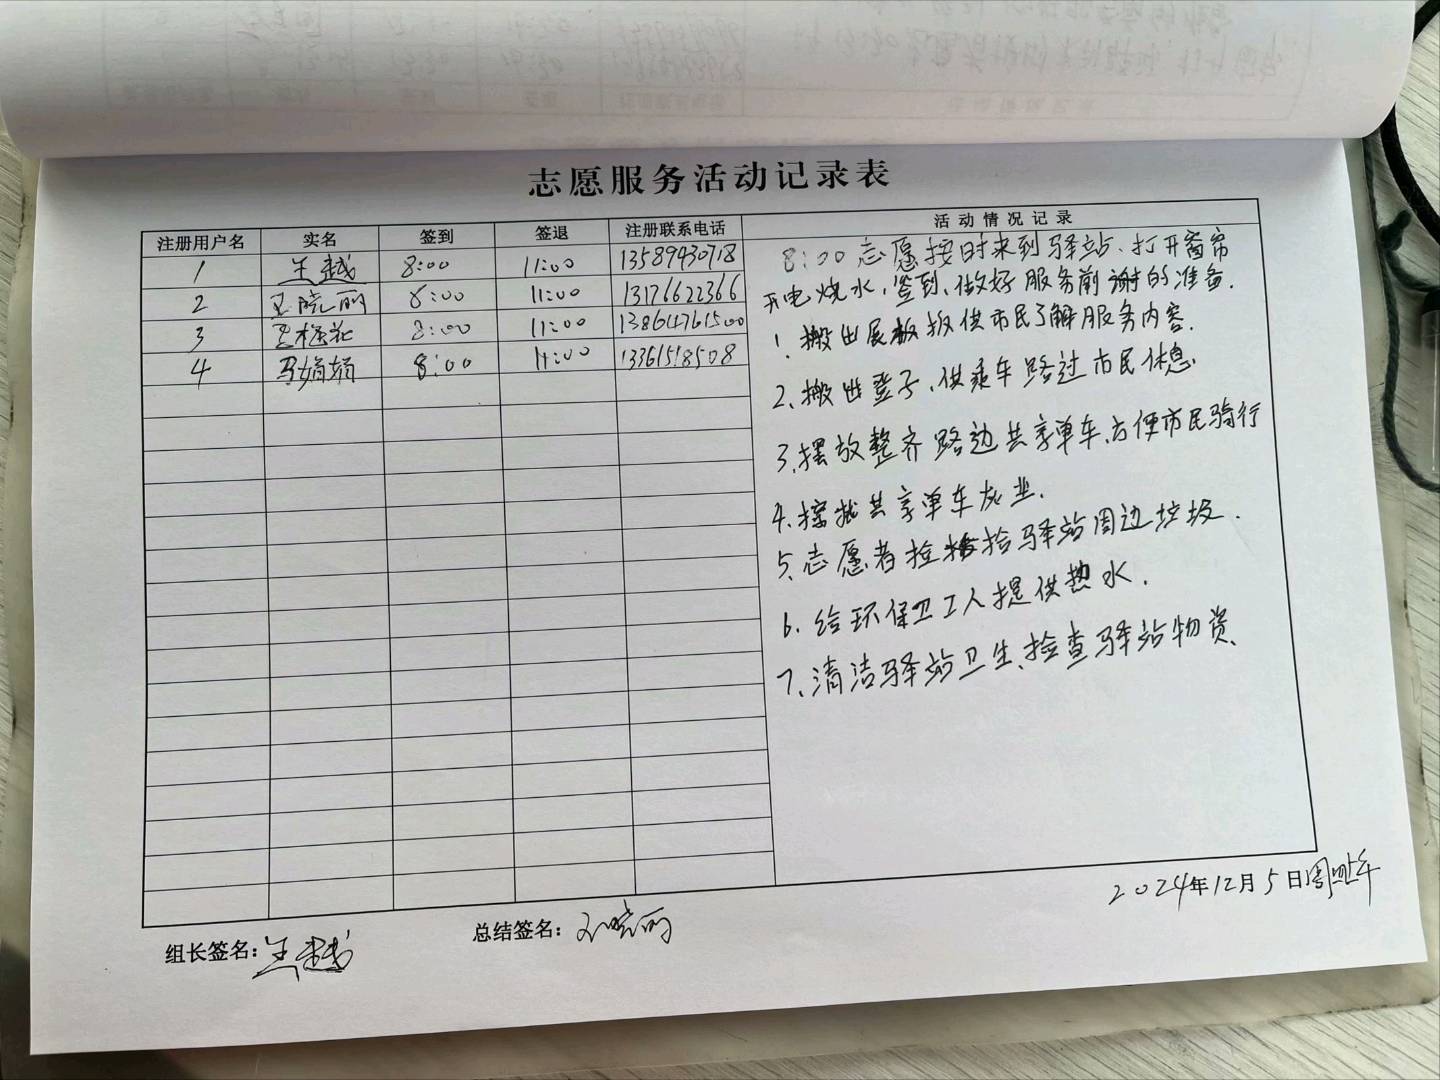 志愿服务活动记录表
注册用户名 实名 签到 签退 注册联系电话 活动情况记录
1 吴越 8:00 11:00 13589430718
2 王晓丽 8:00 11:00 13176622366
3 8:00 11:00 13864761500
4 马娟娟 8:00 11:00 13361518508
8:00志愿按时来到驿站、打开窗帘
开电烧水,签到、做好服务前的准备.
1. 搬出展板供市民了解服务内容.
2、搬出登子、供乘车路过市民休息.
3、摆放整齐路边共享单车、方便市民骑行
4、擦拭共享单车灰尘.
5、志愿者捡拾驿站周边垃圾.
6、给环保卫工人提供热水.
7、清洁驿站卫生、检查驿站物资、
2024年12月5日周四上午
组长签名: 吴越
总结签名: 王晓丽